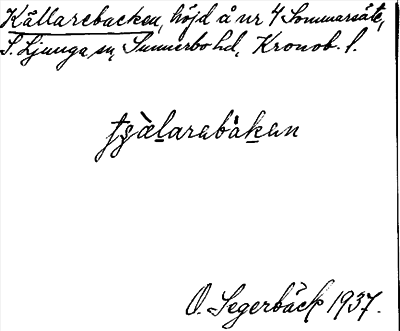 Källarebacken, höjd å nr 4 Sommarsäte,
S. Ljunga sn, Sunnerbo hd, Kronob. l.
O. Segerbäck 1937.